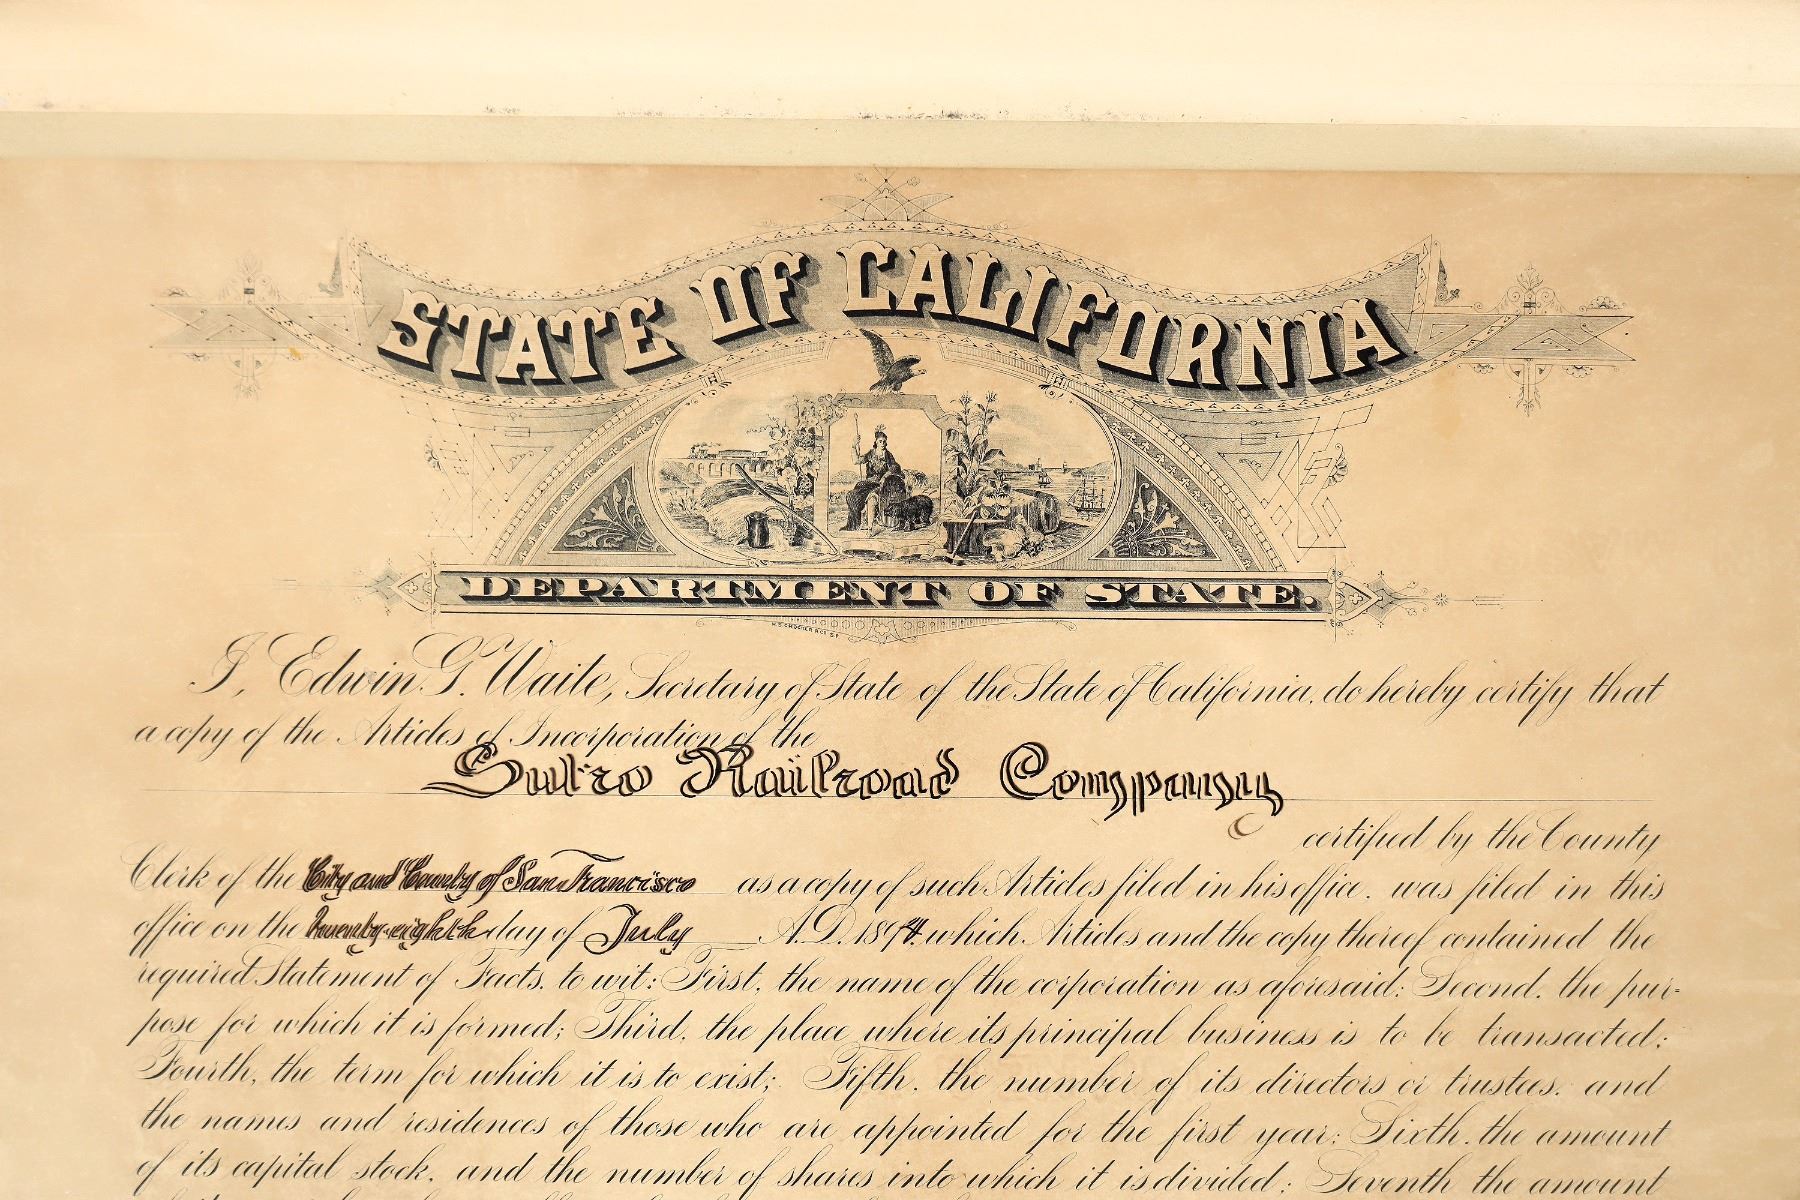 STATE OF CALIFORNIA
DEPARTMENT OF STATE.
I, Edwin G. Waite, Secretary of State of the State of California, do hereby certify that
a copy of the Articles of Incorporation of the
Sutro Railroad Company
certified by the County
Clerk of the City and County of San Francisco as a copy of such Articles filed in his office, was filed in this
office on the twenty-eighth day of July A.D. 1894. which Articles and the copy thereof contained the
required Statement of Facts, to wit: First, the name of the corporation as aforesaid; Second, the pur-
pose for which it is formed; Third, the place where its principal business is to be transacted;
Fourth, the term for which it is to exist; Fifth, the number of its directors or trustees, and
the names and residences of those who are appointed for the first year; Sixth, the amount
of its capital stock, and the number of shares into which it is divided; Seventh the amount